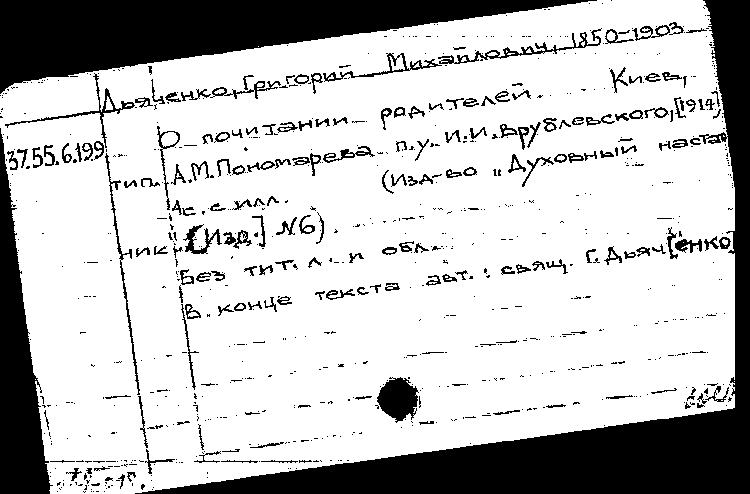 Дьяченко, Григорий Михайлович, 1850-1903
37.55.6.199
О почитании родителей. Киев,
тип. А.М. Пономарева п.у. И.И. Врублевского, [1914]
4с. с илл. (Изд-во „Духовный настав
ник“ [Изд.] №6).
Без тит. л. и обл.
В конце текста авт.: свящ. Г. Дьяч[енко]